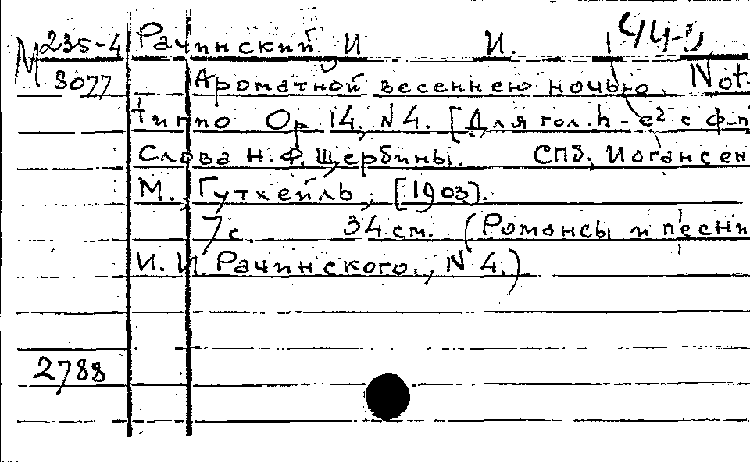 М 235-4 Рачинский И И.
3077 Ароматной весеннею ночью. Not.
Типпо Ор 14, N4. [Для гол. h - e² с ф-п
Слова Н. Ф. Щербины. СПб, Иогансен
М., Гутхейль, [1903].
7 с. 34 см. (Романсы и песни
И. И. Рачинского., N 4.)
2788